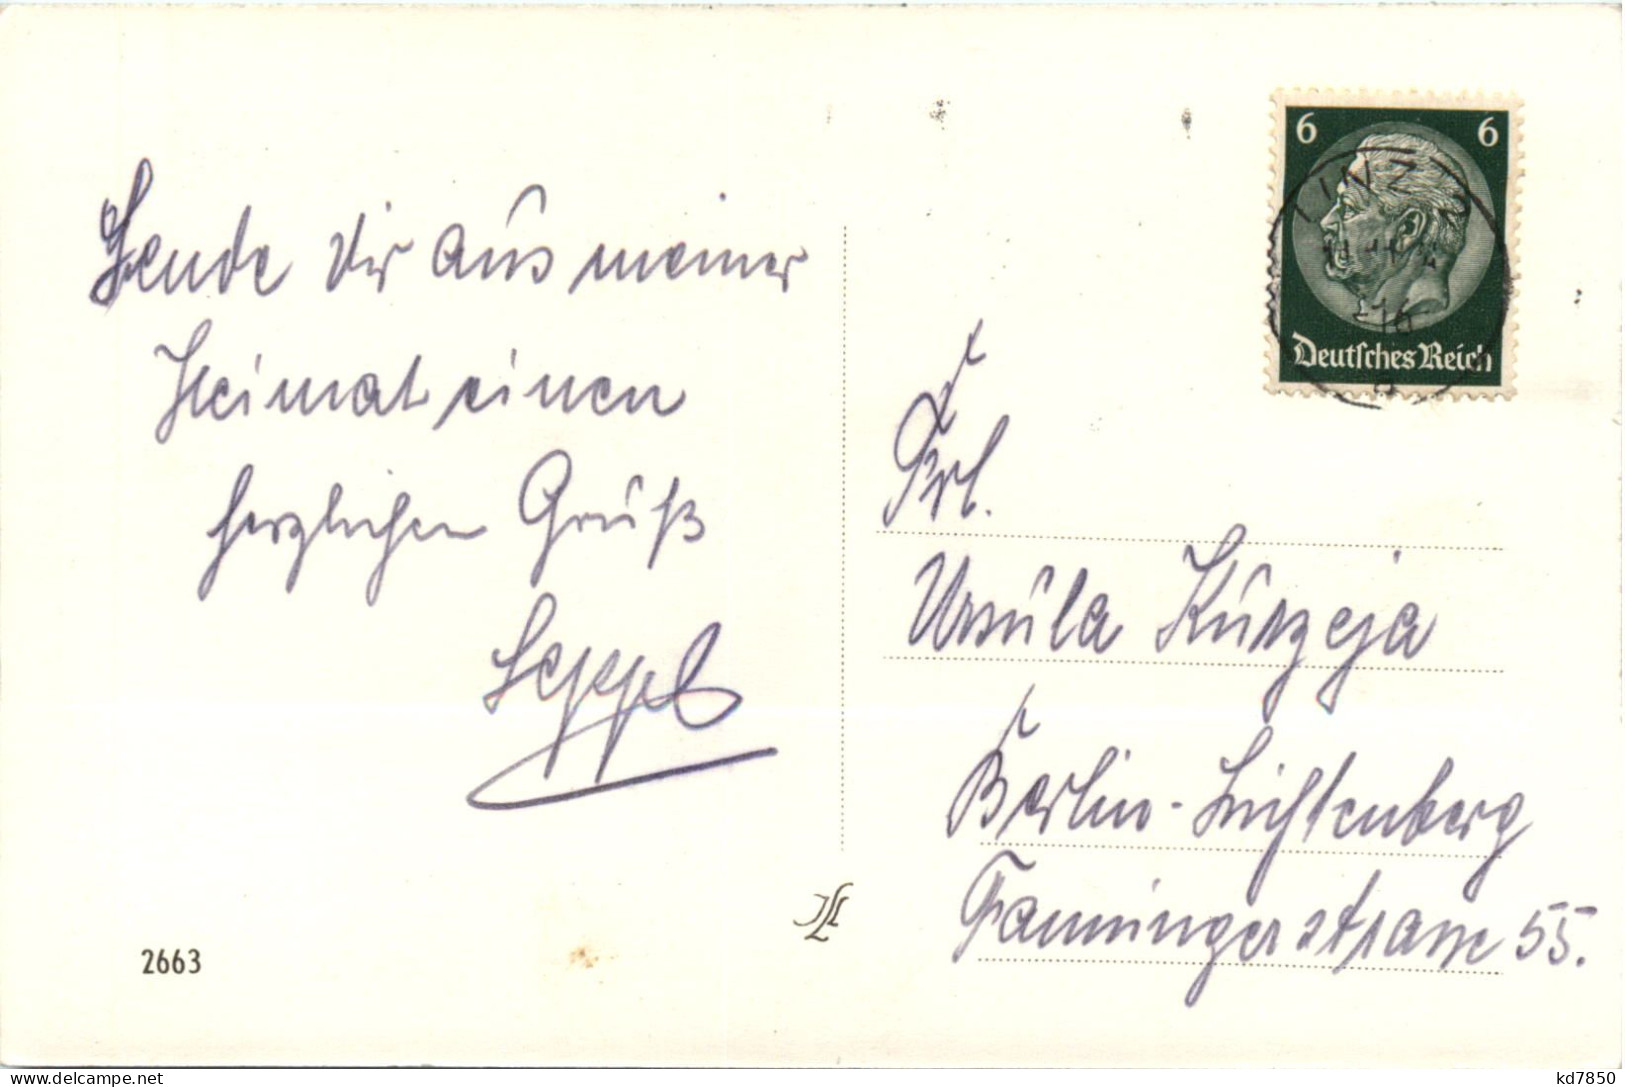 Sende Dir aus meiner
Heimat einen
herzlichen Gruß
Seppl
2663
6 6
Deutsches Reich
Frl.
Ursula Kurzeja
Berlin-Lichtenberg
Fanningerstrasse 55.
kd7850